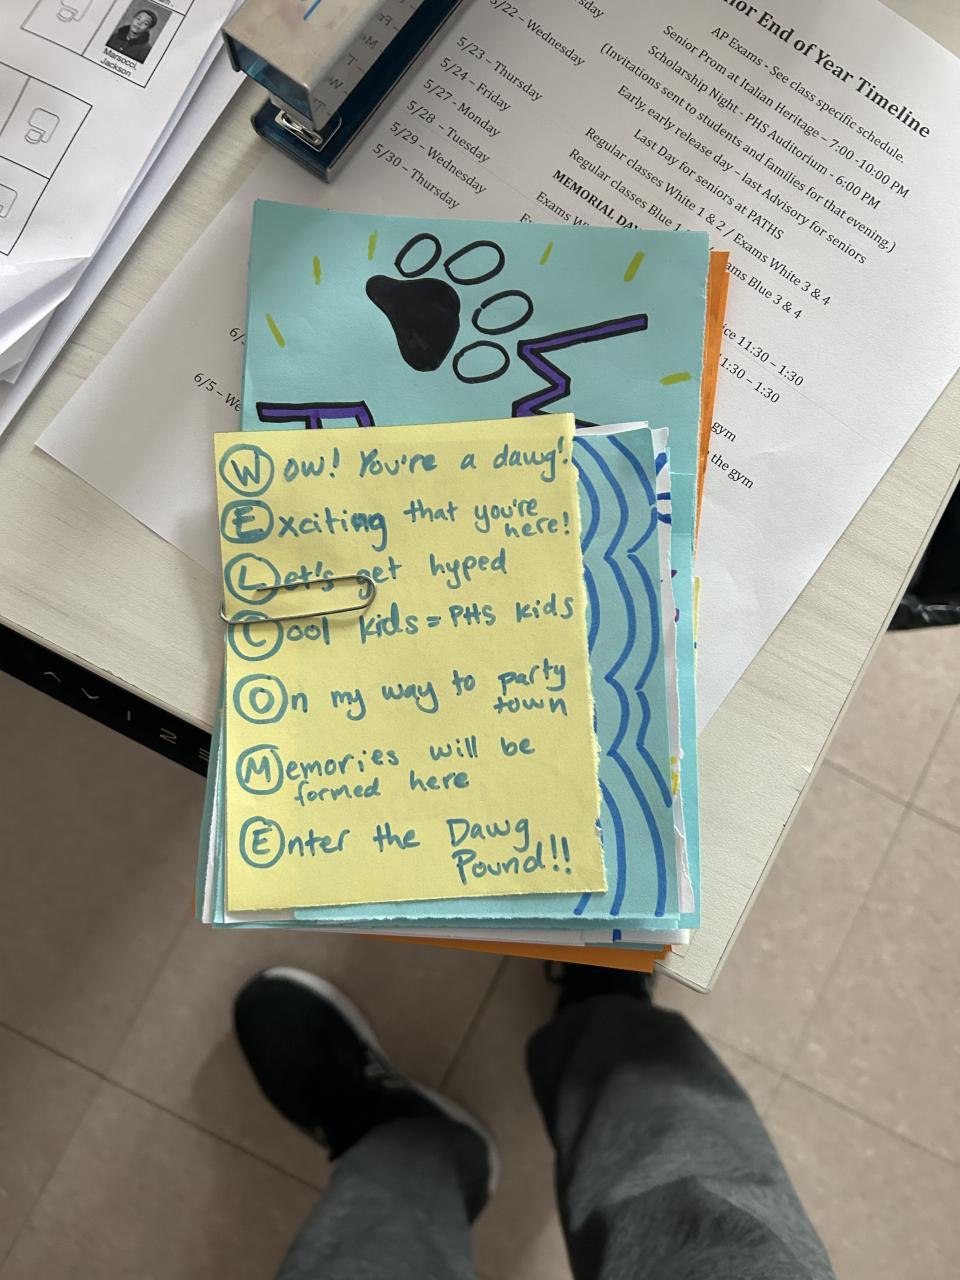 Marsocci,
Jackson
5/22 – Wednesday
5/23 – Thursday
5/24 – Friday
5/27 – Monday
5/28 – Tuesday
5/29 – Wednesday
5/30 – Thursday
End of Year Timeline
AP Exams - See class specific schedule.
Senior Prom at Italian Heritage – 7:00 -10:00 PM
Scholarship Night - PHS Auditorium - 6:00 PM
(Invitations sent to students and families for that evening.)
Early, early release day – last Advisory for seniors
Last Day for seniors at PATHS
Regular classes White 1 & 2 / Exams White 3 & 4
Regular classes Blue 1 Exams Blue 3 & 4
MEMORIAL DAY
Exams
11:30 – 1:30
1:30 – 1:30
gym
the gym
6/5 – We
Wow! You're a dawg!
Exciting that you're
here!
Let's get hyped
Cool kids = PHS kids
On my way to party
town
Memories will be
formed here
Enter the Dawg
Pound!!